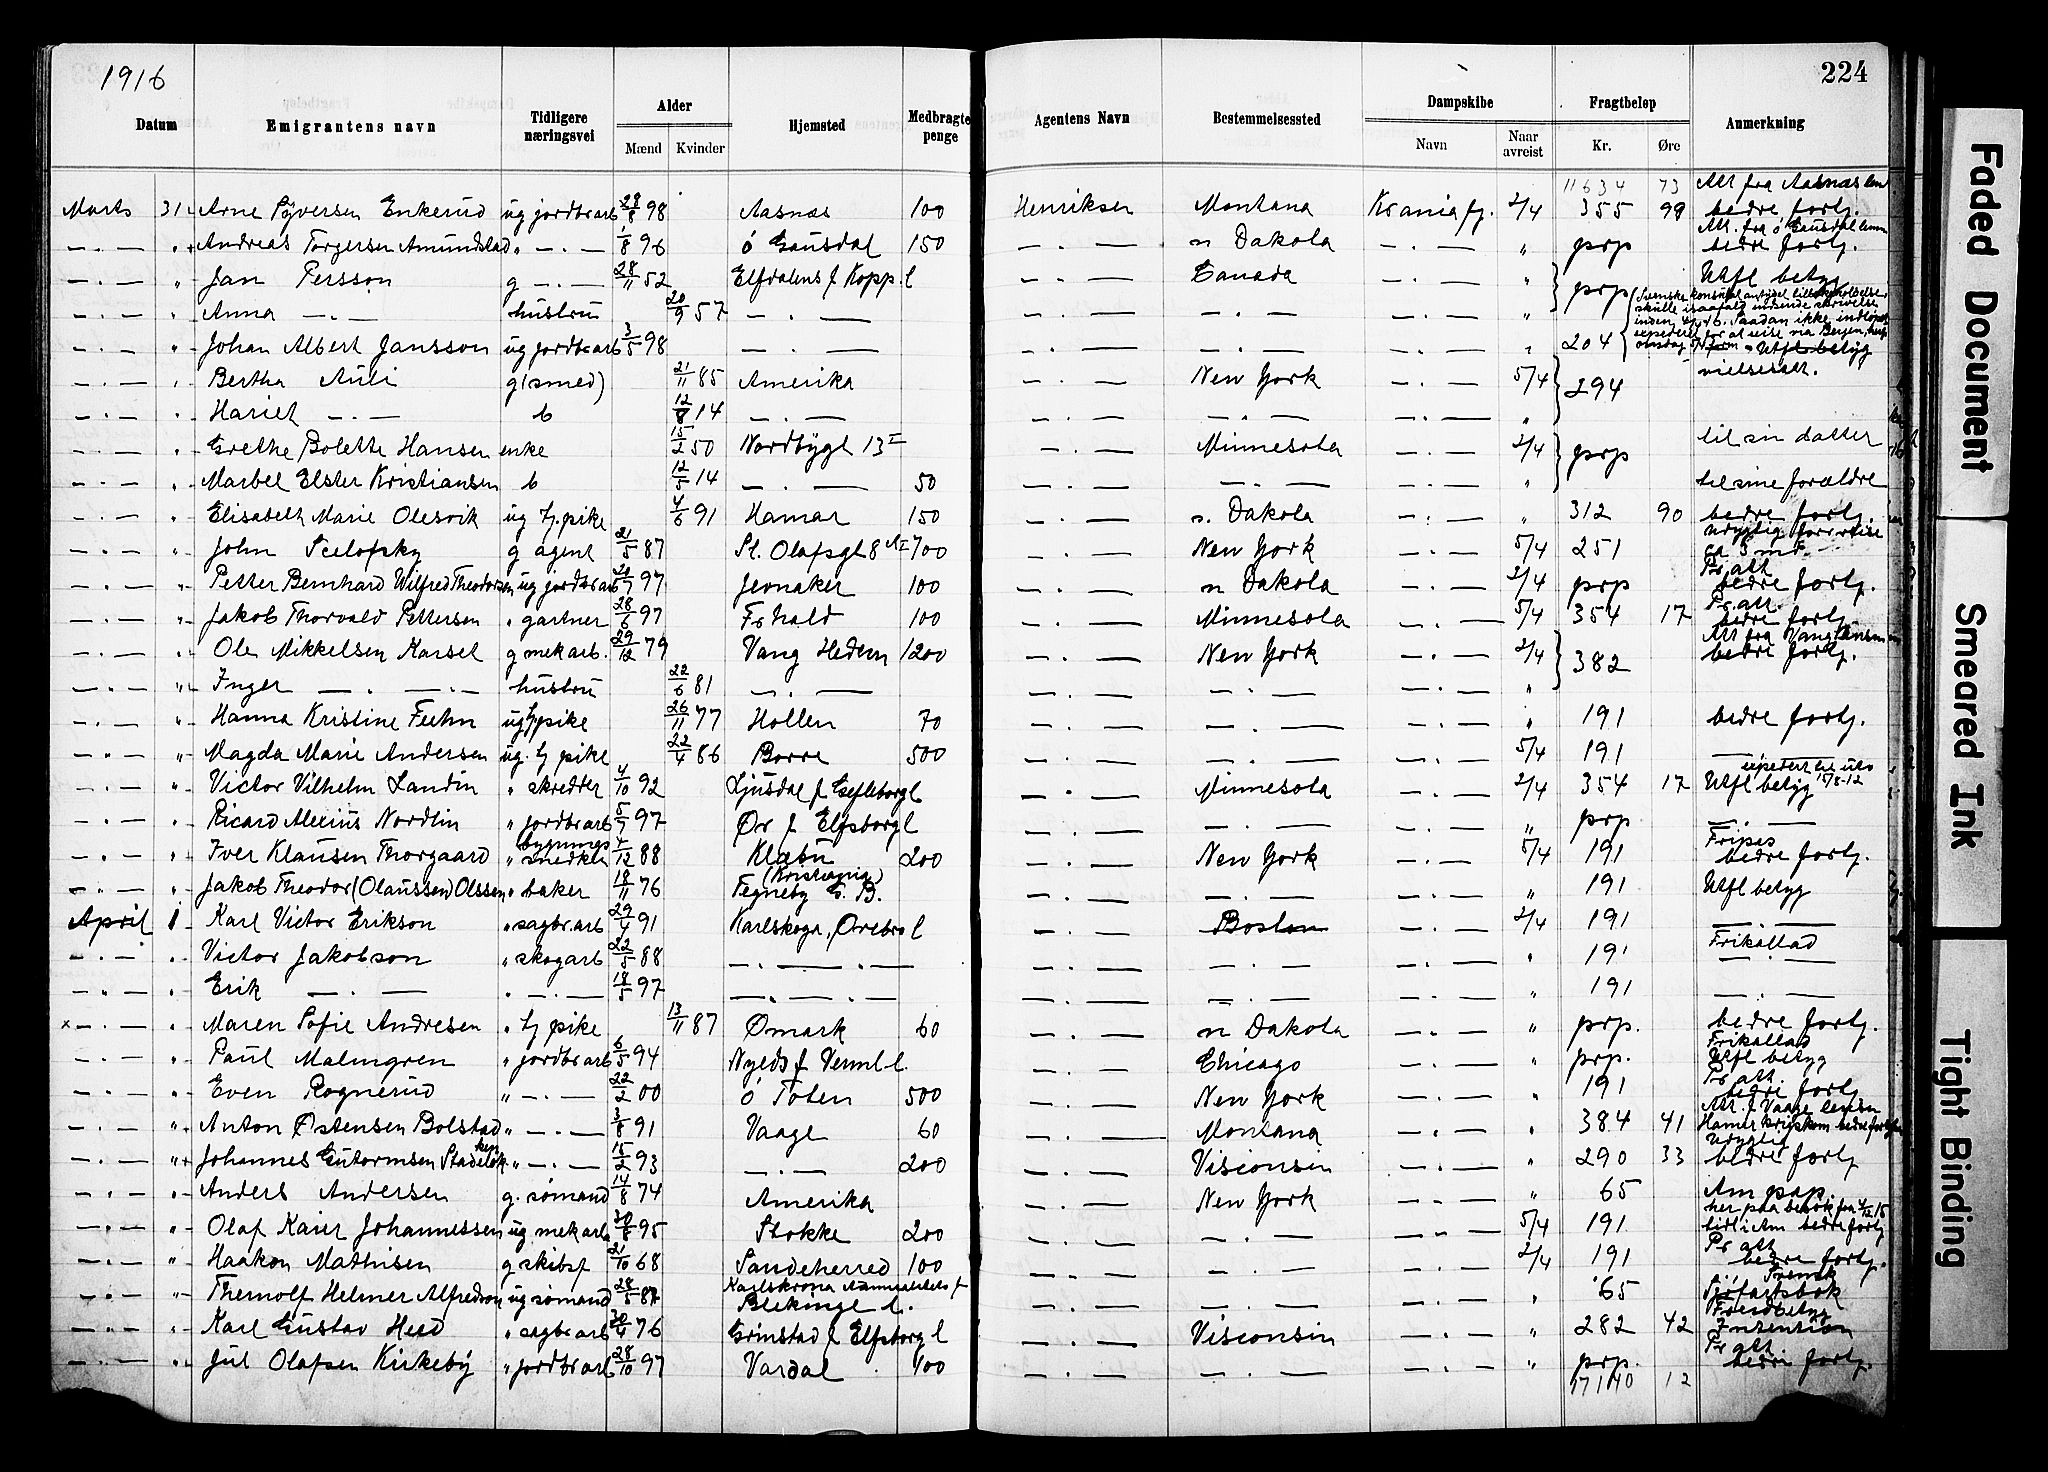 1916
224
Datum Emigrantens navn Tidligere næringsvei Alder Mænd Kvinder Hjemsted Medbragte penge Agentens Navn Bestemmelsessted Dampskibe Navn Naar avreist Fragtbeløp Kr. Øre Anmerkning
11634 73
Marts 31 Arne Syversen Enkerud ug jordbr arb 28/8 98 Aasnæs 100 Henriksen Montana Kr.aniafj. 2/4 355 98 Att fra Aasnæs bedre fortj.
— . — " Andreas Torgersen Amundstad " — . — 1/8 96 ø Gausdal 150 — . — n Dakota — . — " prp Att. fra ø Gausdal bedre fortj.
— . — " Jan Persson g — . — 28/11 52 Elfdalens f Kopp. l — . — Canada — . — " prp Utfl betyg
— . — " Anna — . — hustru 20/9 57 — . — — . — — . — — . — "
— . — " Johan Albert Jansson ug jordbr arb 3/5 98 — . — — . — — . — — . — " 204 Utfl betyg
— . — " Bertha Auli g (smed) 21/11 85 Amerika — . — New York — . — 5/4 294 vielsesatt.
— . — " Hariet — . — b 12/8 14 — . — — . — — . — — . — "
— . — " Grethe Bolette Hansen enke 15/2 50 Nordbygt 13 I — . — Minnesota — . — 2/4 prp til sin datter
— . — " Marbel Elster Kristiansen b 12/5 14 — . — 50 — . — — . — — . — " til sine forældre
— . — " Elisabeth Marie Olesvik ug tj. pike 4/6 91 Hamar 150 — . — n. Dakota — . — " 312 90 bedre fortj.
— . — " John Scelofsky g agent 21/5 87 St. Olafsgt 8 700 — . — New York — . — 5/4 251 ca 3 md
— . — " Petter Bernhard Wilfred Theodorsen ug jordbr arb 97 Jevnaker 100 — . — n Dakota — . — 2/4 prp Pr att bedre fortj.
— . — " Jakob Thorvald Pettersen " gartner 28/6 97 Fr hald 100 — . — Minnesota — . — 5/4 354 17 Pr. att. bedre fortj.
— . — " Ole Mikkelsen Karset g mek arb. 29/12 79 Vang Hedem 1200 — . — New York — . — 2/4 382 Att fra Vang bedre fortj.
— . — " Inger — . — hustru 22/6 81 — . — — . — — . — — . — "
— . — " Hanna Kristine Feehn ug tj pike 26/11 77 Hollen 70 — . — — . — — . — " 191 bedre fortj.
— . — " Magda Marie Andersen ug. tj pike 22/4 86 Borre 500 — . — — . — — . — 5/4 191 — . —
— . — " Victor Vilhelm Landin " skredder 4/10 92 Ljusdal f Gefleborg l — . — Minnesota — . — 2/4 354 17 Utfl betyg
— . — " Ricard Alexius Nordlin " jordbr arb 5/7 97 Ør f Elfsborg l — . — — . — — . — " prp — . —
— . — " Iver Klausen Thorgaard " bygnings snedker 4/12 88 Klæbu 200 — . — New York — . — 5/4 191 Fripas bedre fortj.
— . — " Jakob Theodor (Olaussen) Olssen " baker 18/11 76 (Kristiania) Tegneby G. B. — . — — . — — . — " 191 Utfl betyg
April 1 Karl Victor Erikson " sagbr. arb 29/4 91 Karlskoga, Ørebro l — . — Boston — . — 2/4 191 — . —
— . — " Victor Jakobson " skogarb 22/5 88 — . — . — — . — — . — — . — " 191 Frikallad — . —
— . — " Erik — . — " — . — 18/5 97 — . — . — — . — — . — — . — " 191 — . —
x — . — " Maren Sofie Andresen " tj pike 13/11 87 Ømark 60 — . — n Dakota — . — " prp. bedre fortj.
— . — " Paul Malmgren " jordbr arb 6/5 94 Nyeds f Verml- l. — . — Chicago — . — " prp. Frikallad Utfl betyg
— . — " Even Rognerud " — . — 22/2 00 ø Toten 500 — . — New York — . — " 191 Pr att. bedre fortj
— . — " Anton Østensen Bolstad " — . — 3/8 91 Vaage 60 — . — Montana — . — " 384 41 Att. f Vaage
— . — " Johannes Gutormsen Stadeløkken " — . — 15/2 93 — . — 200 — . — Visconsin — . — " 290 33 Utygtig bedre fortj
— . — " Anders Andersen g. sømand 14/8 74 Amerika — . — New York — . — " 65 Am pap.
— . — " Olaf Kaier Johannessen ug mek arb 30/8 95 Stokke 200 — . — — . — — . — 5/4 191 her paa besøk fra 4/12 15 tidl i Am bedre fortj
— . — " Haakon Mathisen g skibsf 21/10 68 Sandeherred 100 — . — — . — — . — 2/4 191 Pr att bedre fortj.
— . — " Thernolf Helmer Alfredson ug sømand 28/5 87 Karlskrona f Blekinge l. — . — — . — — . — " 65 Svensk Sjøfartsbok
— . — " Karl Gustav Hed " sagbr arb 30/4 76 Grinstad f Elfsborg l — . — Visconsin — . — " 282 42 Fredbetyg Intention
— . — " Jul Olafsen Kirkeby " jordbr arb 28/10 97 Vardal 100 — . — — . — — . — " prp. Pr att. bedre fortj.
17140 12
Faded Document
Smeared Ink
Tight Binding